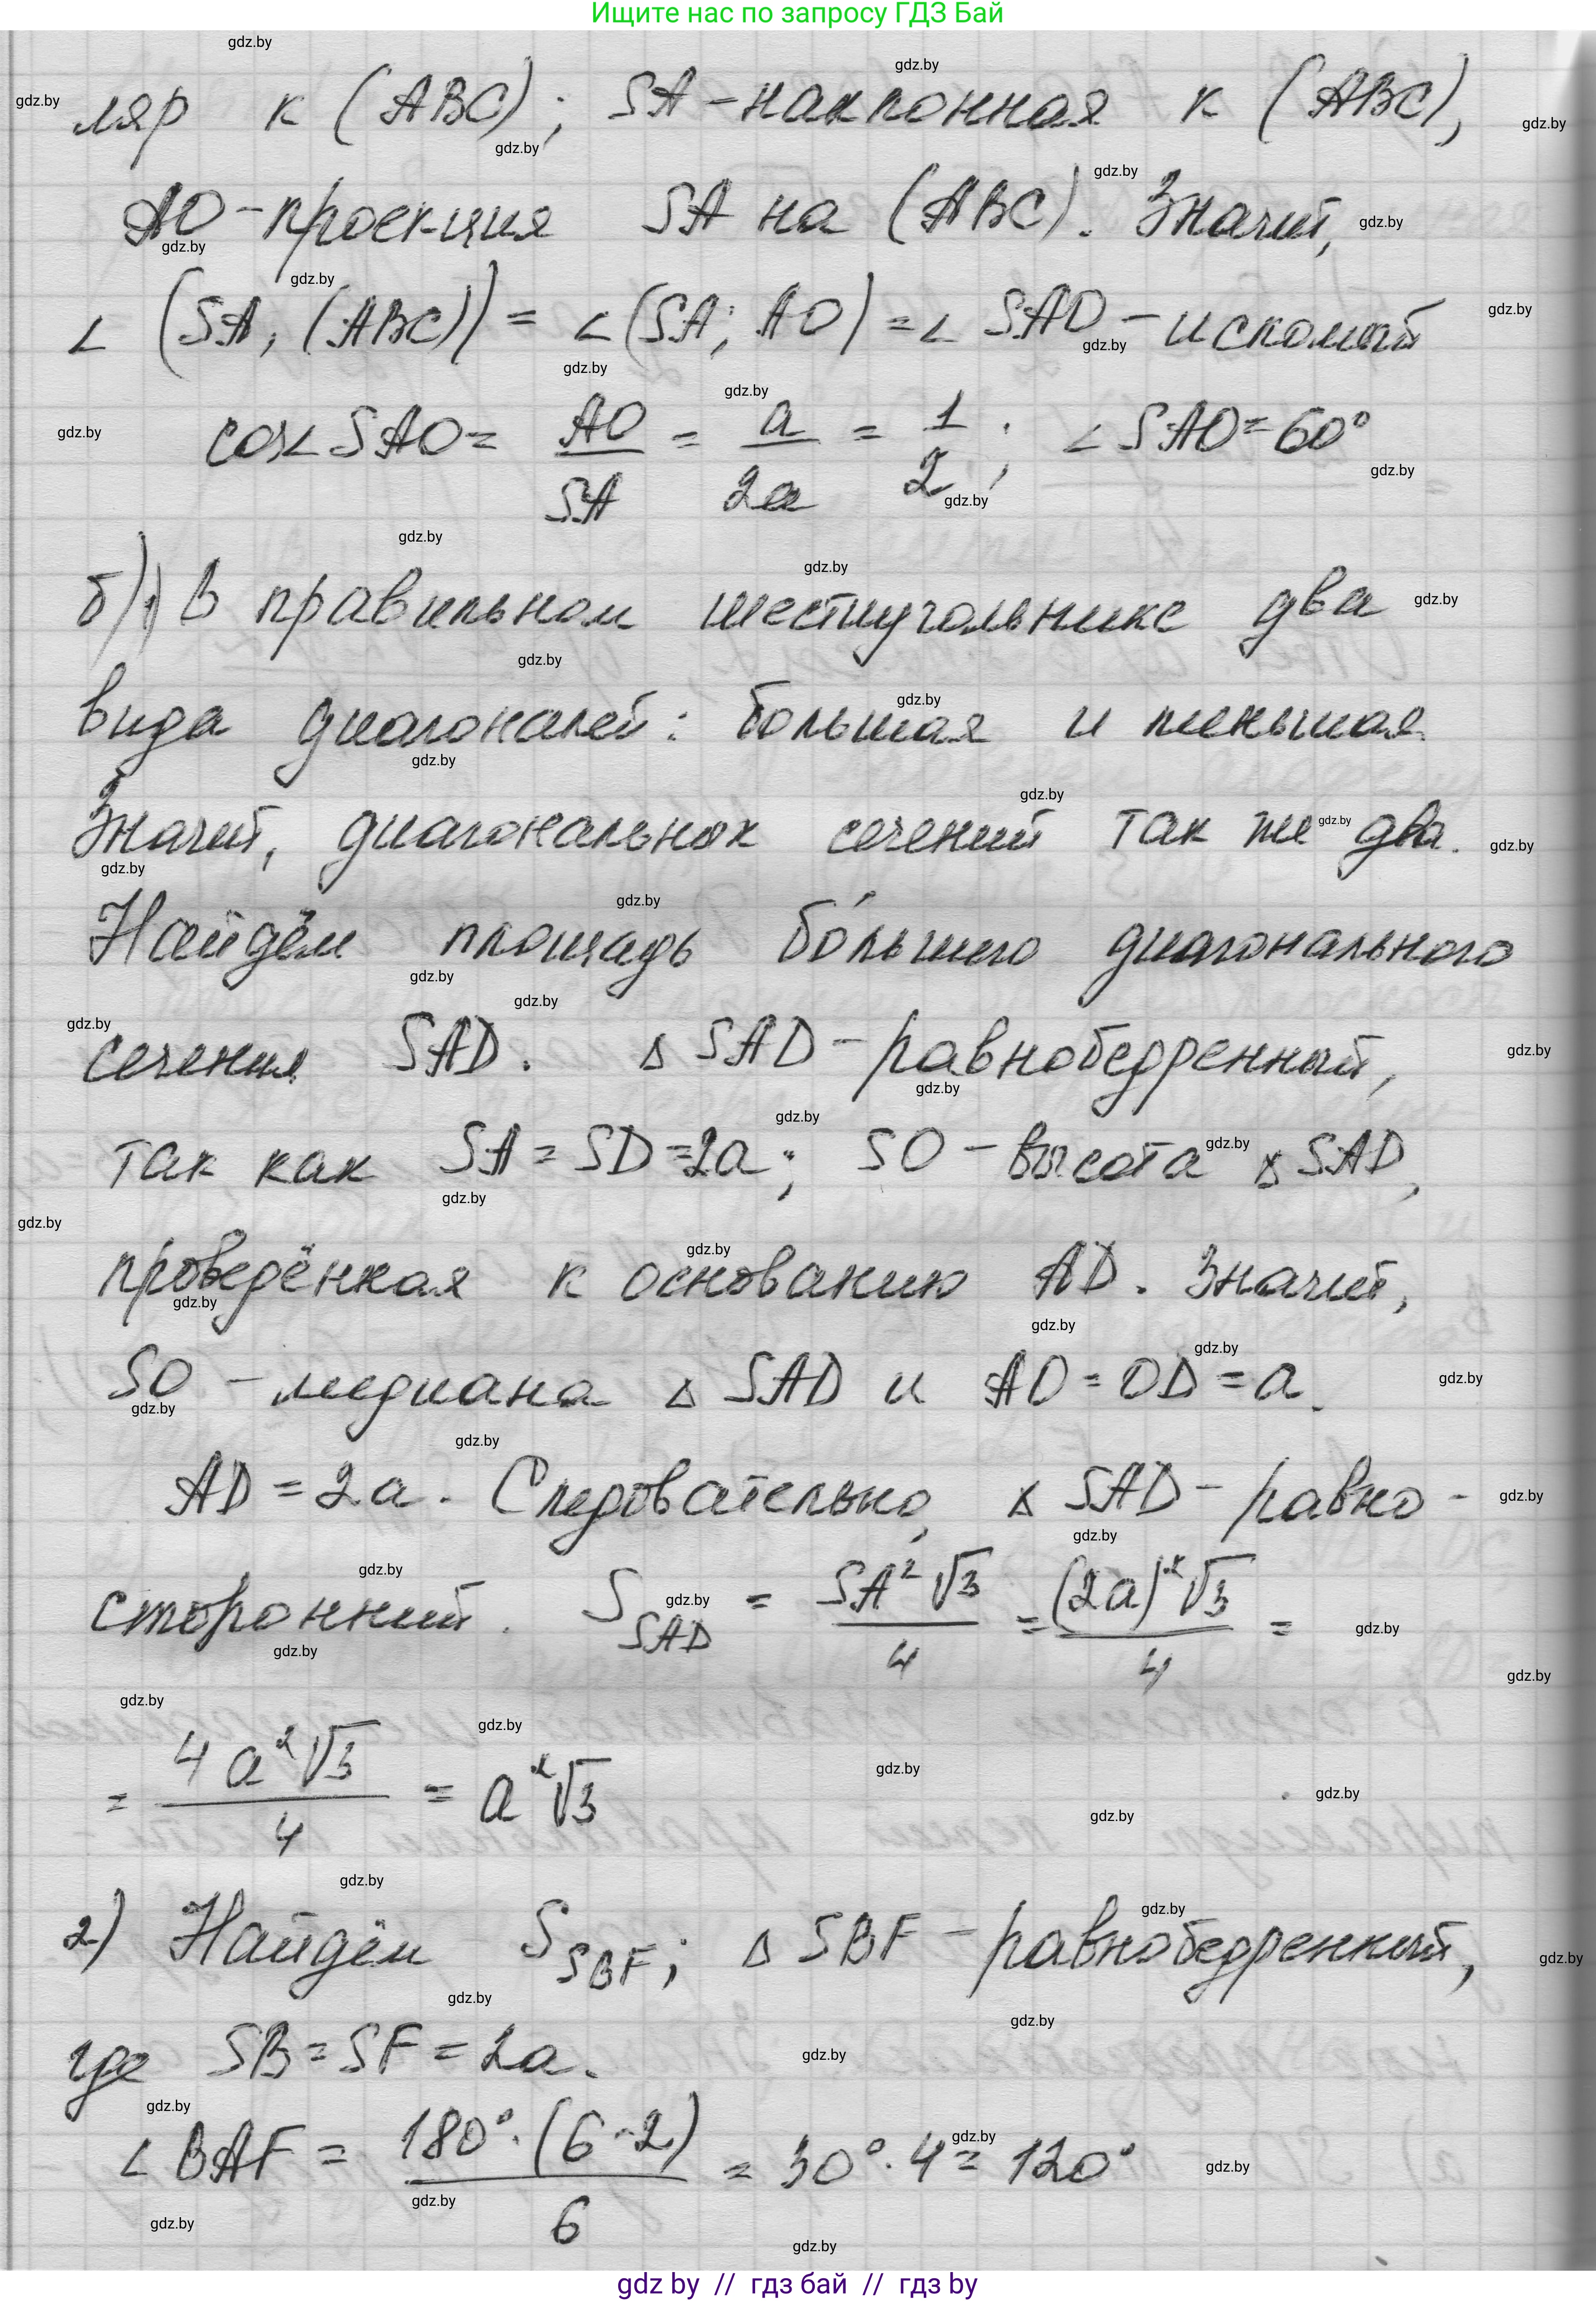 Ищите нас по запросу ГДЗ Бай
ляр к (ABC); SA - наклонная к (ABC),
AO - проекция SA на (ABC). Значит,
∠ (SA; (ABC)) = ∠(SA; AO) = ∠ SAO - искомый
cos∠ SAO = AO/SA = a/2a = 1/2; ∠ SAO = 60°
б) 1) В правильном шестиугольнике два
вида диагоналей: большая и меньшая.
Значит, диагональных сечений так же два.
Найдём площадь бо́льшего диагонального
сечения SAD. Δ SAD - равнобедренный,
так как SA = SD = 2a; SO - высота Δ SAD,
проведённая к основанию AD. Значит,
SO - медиана Δ SAD и AO = OD = a.
AD = 2a. Следовательно, Δ SAD - равно-
сторонний. S SAD = SA² √3/4 = (2a)² √3/4 =
= 4a² √3/4 = a² √3
2) Найдём S SBF; Δ SBF - равнобедренный,
где SB = SF = 2a.
∠ BAF = 180° · (6 - 2)/6 = 30° · 4 = 120°
gdz by // гдз бай // гдз by